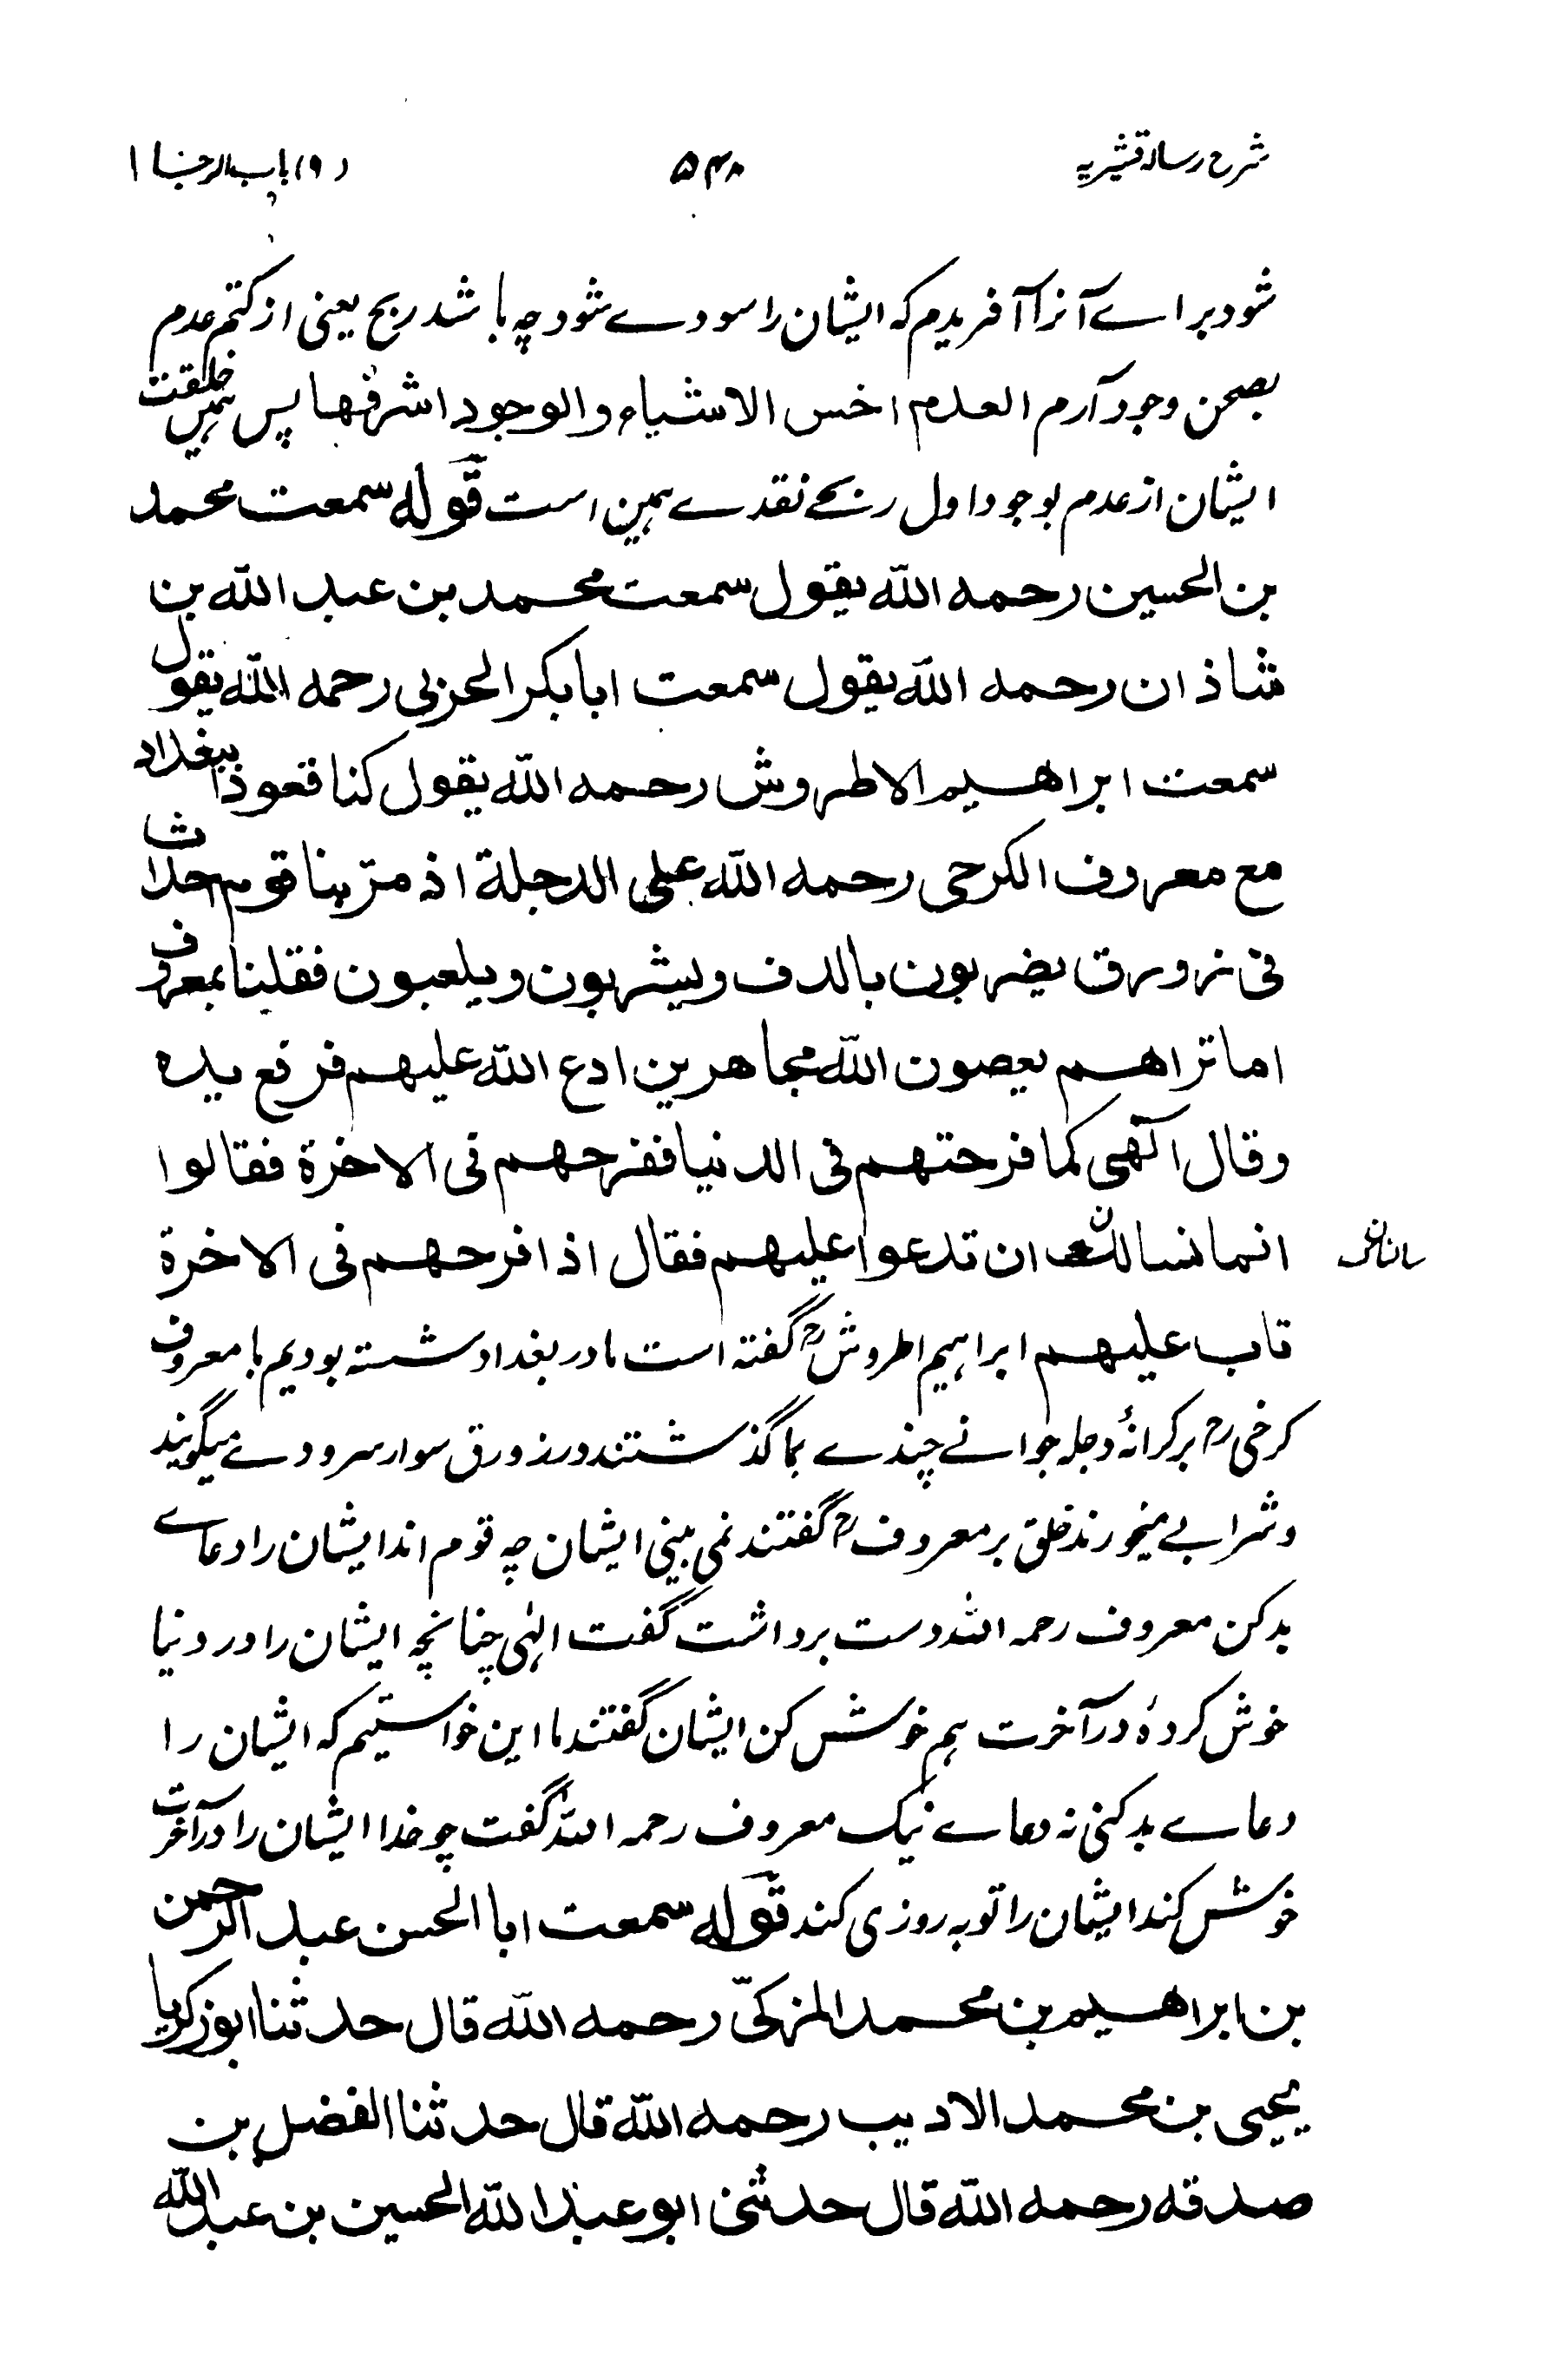 شرح رسالہ قشیریہ ۵۴۸ (۱۹) باب الرجا
شود برائے آنرا آفریدم کہ ایشان را سودے شود چہ باشد ربح یعنی از کتم عدم
بصحن وجود آرم العدم اخس الاشیاء والوجود اشرفها پس ہمین خلقت
ایشان از عدم بوجود اول ربحے نقدے ہمین است قوله سمعت محمد
بن الحسین رحمه الله یقول سمعت محمد بن عبد الله بن
شاذان رحمه الله یقول سمعت ابابکر الحربی رحمه الله یقول
سمعت ابراهیم الاطروش رحمه الله یقول کنا قعوذا ببغداد
مع معروف الکرخی رحمه الله علی الدجلة اذ مرّ بنا قوم احداث
فی زورق یضربون بالدف ویشربون ویلعبون فقلنا بمعروف
اما تراهم یعصون الله مجاهرین ادع الله علیهم فرفع یده
وقال آلهی کما فرحتهم فی الدنیا ففرحهم فی الاخرة فقالوا
انما نسالك ان تدعوا علیهم فقال اذا فرحهم فی الاخرة
تاب علیهم ابراہیم اطروش رح گفتہ است ما در بغداد شستہ بودیم با معروف
کرخی رح بر کرانۂ دجلہ جوانے چندے بما گذشتند در زورق سوار سرودے میگویند
و شرابے میخورند خلق بر معروف رح گفتند نمی بینی ایشان چہ قوم اند ایشان را دعاے
بد کن معروف رحمہ اللہ دست برداشت گفت الہٰی چنانچہ ایشان را در دنیا
خوش کردۂ در آخرت ہم خوش کن ایشان گفتند ما این خواستیم کہ ایشان را
دعاے بد کنی نہ دعاے نیک معروف رحمہ اللہ گفت چو خدا ایشان را در آخرت
خوش کند ایشان را توبہ روزی کند قوله سمعت ابا الحسن عبد الرحمن
بن ابراهیم بن محمد المزکیّ رحمه الله قال حدثنا ابو زکریا
یحیی بن محمد الادیب رحمه الله قال حدثنا الفضل بن
صدقه رحمه الله قال حدثنی ابو عبد الله الحسین بن عبد الله